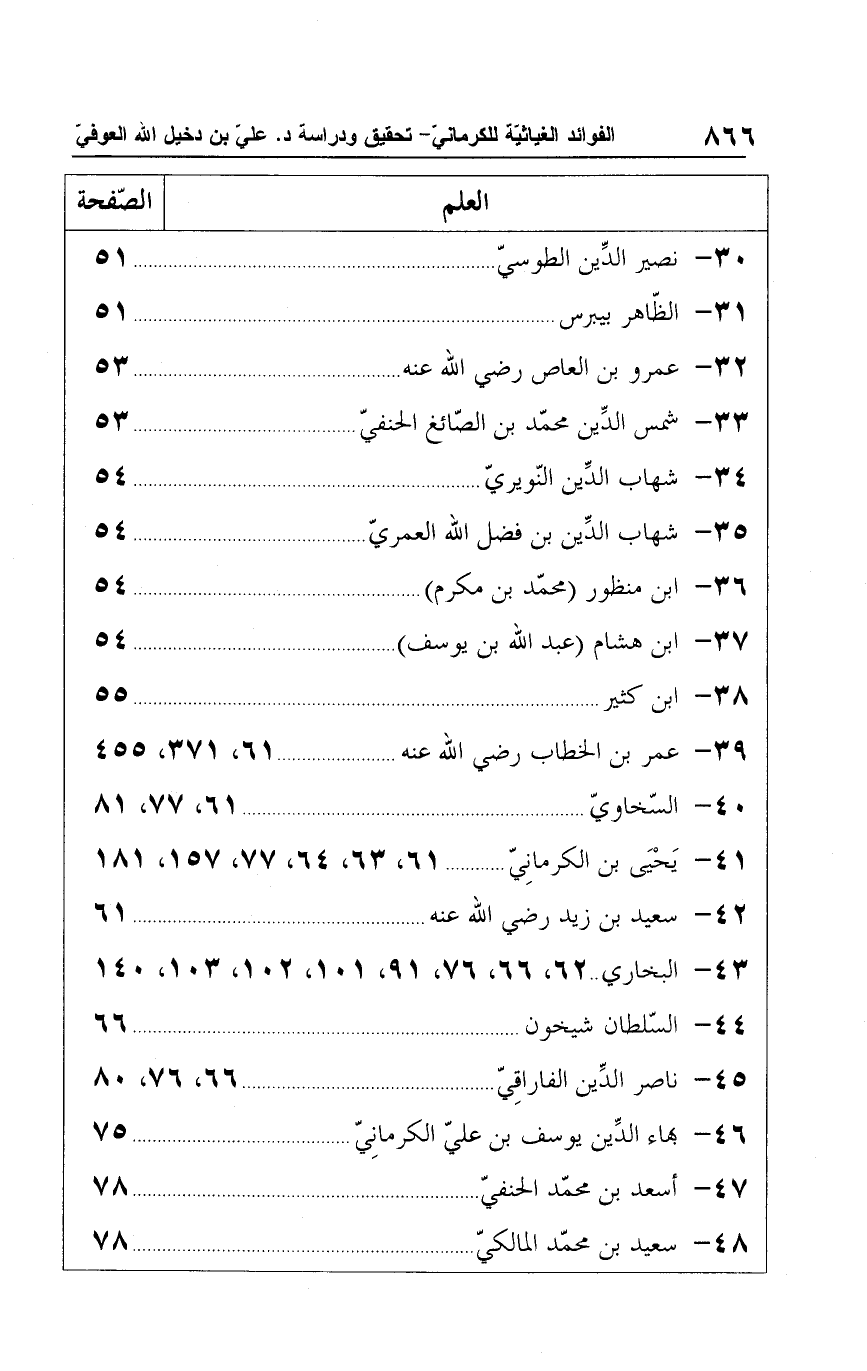 ٨٦٦ الفوائد الغياثيّة للكرمانيّ- تحقيق ودراسة د. عليّ بن دخيل الله العوفيّ
العلم الصّفحة
٣٠- نصير الدِّين الطوسيّ ٥١
٣١- الظّاهر بيبرس ٥١
٣٢- عمرو بن العاص رضي الله عنه ٥٣
٣٣- شمس الدِّين محمّد بن الصّائغ الحنفيّ ٥٣
٣٤- شهاب الدِّين النّويريّ ٥٤
٣٥- شهاب الدِّين بن فضل الله العمريّ ٥٤
٣٦- ابن منظور (محمّد بن مكرم) ٥٤
٣٧- ابن هشام (عبد الله بن يوسف) ٥٤
٣٨- ابن كثير ٥٥
٣٩- عمر بن الخطاب رضي الله عنه ٦١، ٣٧١، ٤٥٥
٤٠- السّخاويّ ٦١، ٧٧، ٨١
٤١- يَحْيَى بن الكرمانِيّ ٦١، ٦٣، ٦٤، ٧٧، ١٥٧، ١٨١
٤٢- سعيد بن زيد رضي الله عنه ٦١
٤٣- البخاري ٦٢، ٦٦، ٧٦، ٩١، ١٠١، ١٠٢، ١٠٣، ١٤٠
٤٤- السّلطان شيخون ٦٦
٤٥- ناصر الدِّين الفاراقِيّ ٦٦، ٧٦، ٨٠
٤٦- بهاء الدِّين يوسف بن عليّ الكرمانِيّ ٧٥
٤٧- أسعد بن محمّد الحنفيّ ٧٨
٤٨- سعيد بن محمّد المالكيّ ٧٨